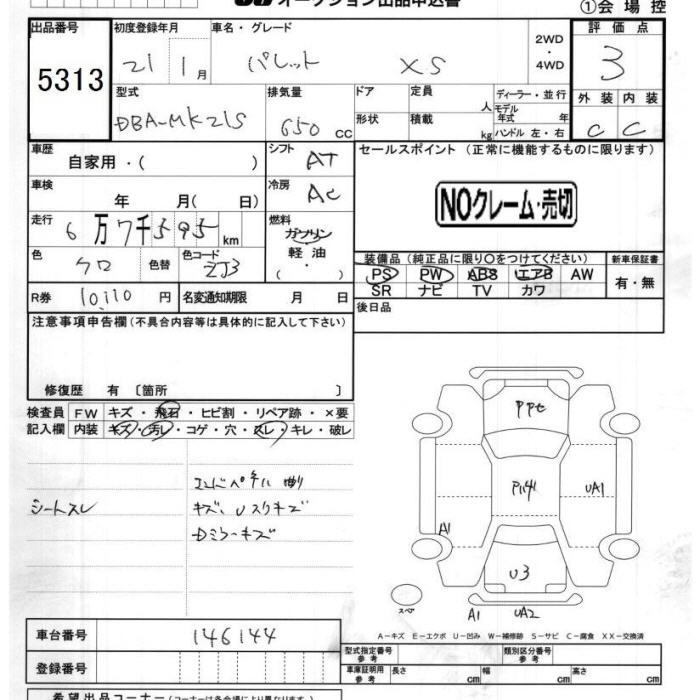 オークション出品申込書
①会場控
出品番号
初度登録年月
車名・グレード
2WD
・
4WD
評価点
5313
21 1月
パレット XS
3
型式
排気量
ドア
定員
人
ディーラー・並行
モデル
年式 年
外装 内装
DBA-MK21S
650 CC
形状
積載
kg
ハンドル 左・右
C C
車歴
自家用・( )
シフト
AT
セールスポイント (正常に機能するものに限ります)
車検
年 月( 日)
冷房
AC
NOクレーム・売切
走行
6万7千595km
燃料
ガソリン
軽油
( ・ )
色
クロ
色替
色コード
ZJ3
装備品(純正品に限り〇をつけてください)
新車保証書
PS PW ABS エアB AW
SR ナビ TV カワ
有・無
R券
10,110円
名変通知期限 月 日
後日品
注意事項申告欄(不具合内容等は具体的に記入して下さい)
修復歴 有 〔箇所 〕
検査員
記入欄
FW キズ・飛石・ヒビ割・リペア跡・×要
内装 キズ・汚レ・コゲ・穴・スレ・キレ・破レ
シートスレ
キズ、Uスリキズ
Dミラーキズ
A1
UA1
U3
スペア
A1
UA2
A-キズ E-エクボ U-凹み W-補修跡 S-サビ C-腐食 XX-交換済
車台番号
146144
型式指定番号
参考
類別区分番号
参考
登録番号
車庫証明用
参考
長さ cm
幅 cm
高さ cm
希望出品コーナー(コーナーは各会場により異なります)